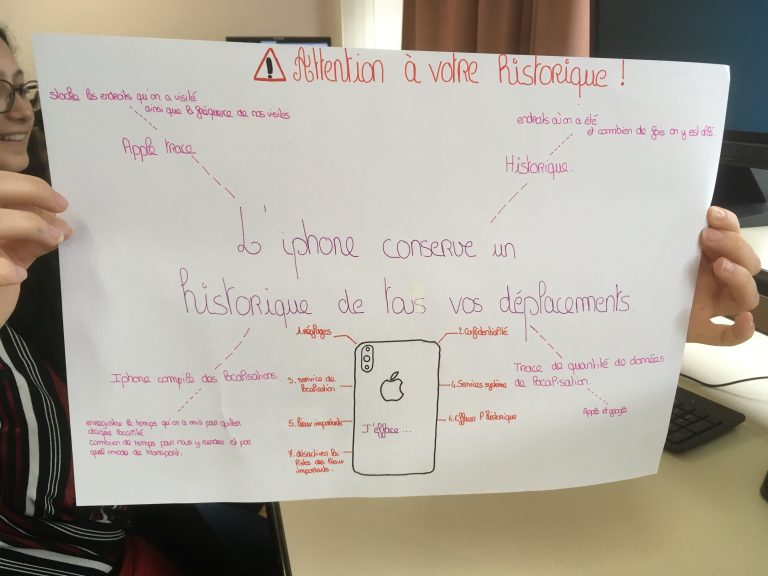 ⚠ Attention à votre historique !
stocke les endroits qu'on a visité
ainsi que la fréquence de nos visites
Apple trace
endroits où on a été
et combien de fois on y est allé.
Historique.
L'iphone conserve un
historique de tous vos déplacements.
Iphone compile des localisations
enregistre le temps qu'on a mis pour quitter
chaque localité.
combien de temps pour nous y rendre et par
quel mode de transport.
Trace de quantité de données
de localisation
Apple et google
1. réglages
2. Confidentialité
3. service de
localisation
4. Services système
5. lieux importants
6. effacer l'historique
7. désactiver les
listes des lieux
importants.
J'efface...